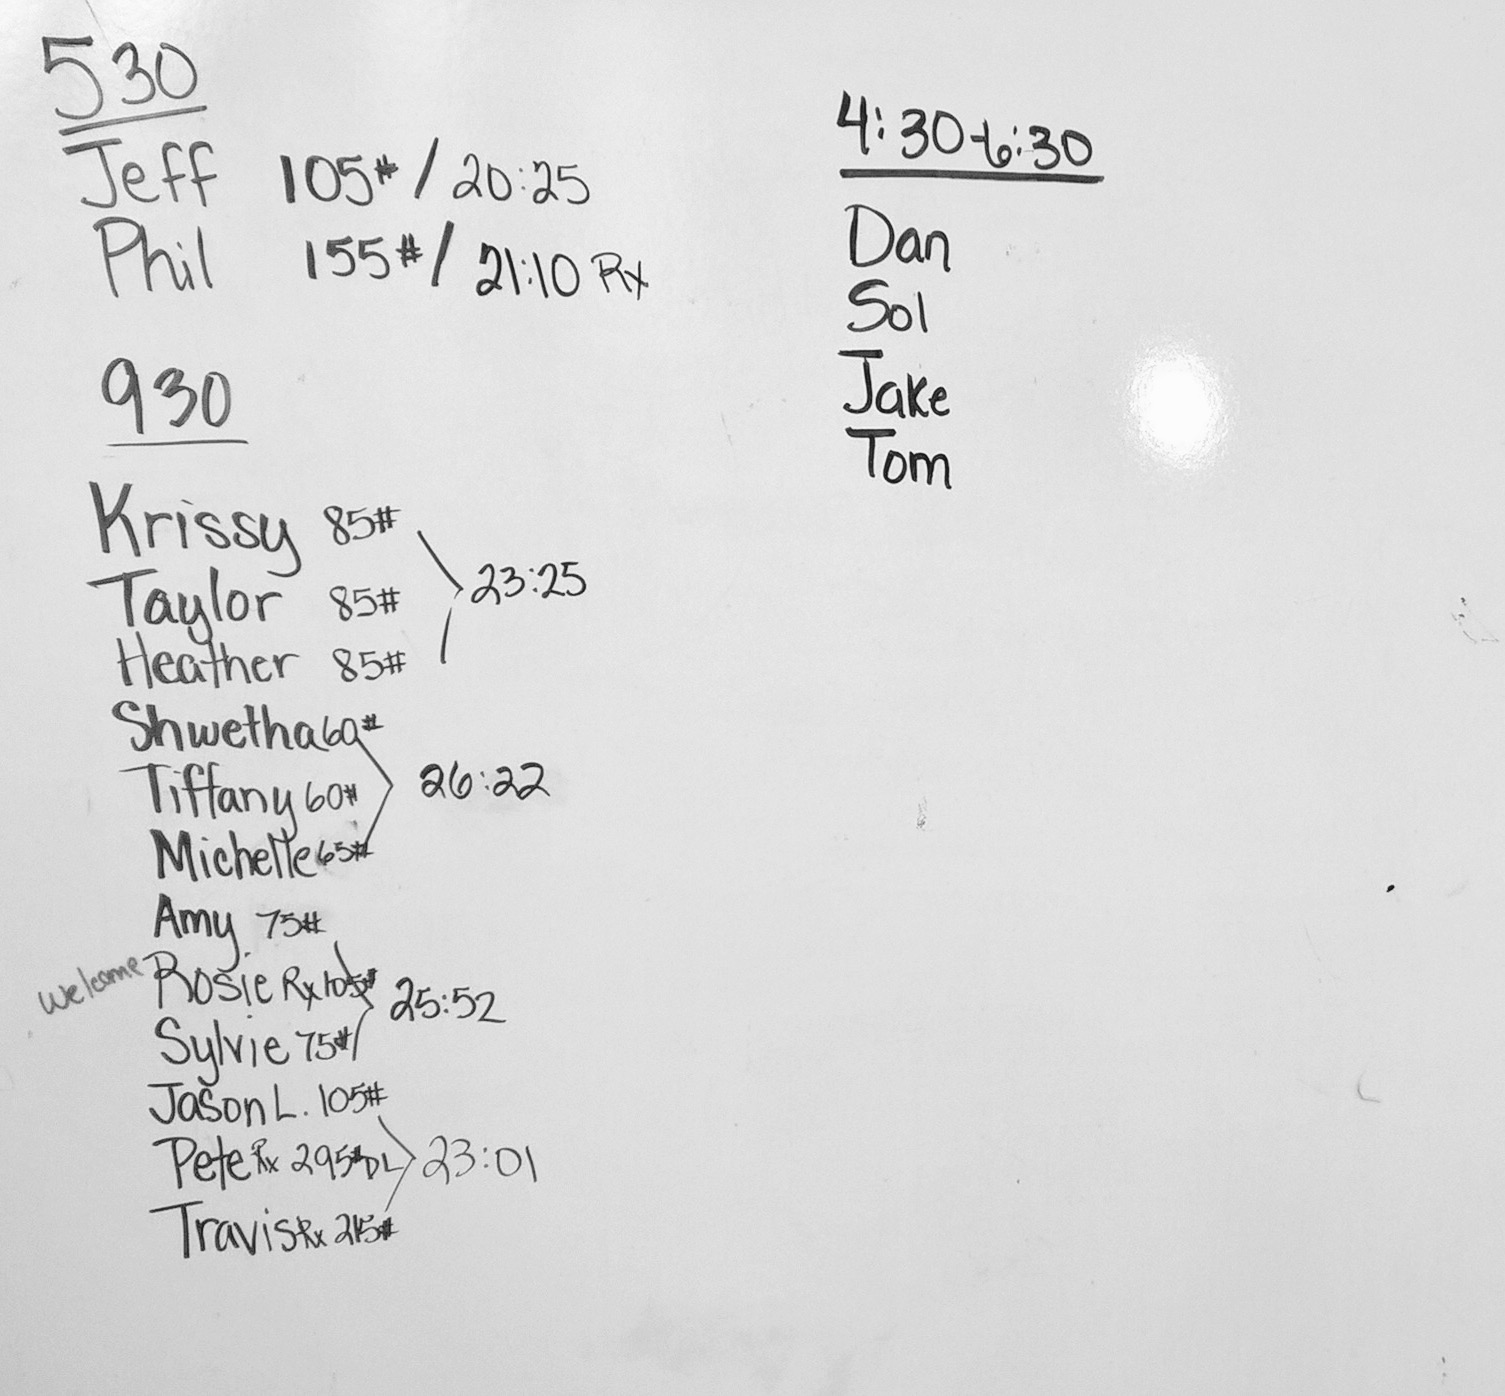 530
Jeff 105# / 20:25
Phil 155# / 21:10 Rx
930
Krissy 85#
Taylor 85#
23:25
Heather 85#
Shwetha 60#
Tiffany 60#
26:22
Michelle 65#
Amy 75#
welcome Rosie Rx 105#
25:52
Sylvie 75#
Jason L. 105#
Pete Rx 295# DL
23:01
Travis Rx 215#
4:30-6:30
Dan
Sol
Jake
Tom